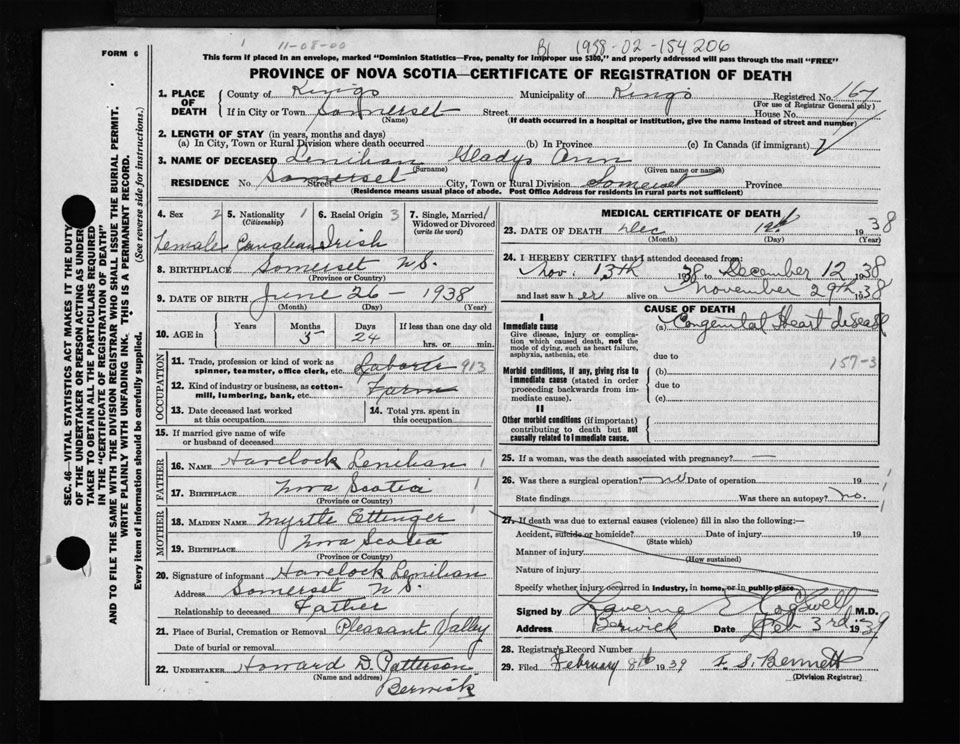 FORM 6
11-08-00
B1 1938-02-154206
This form if placed in an envelope, marked "Dominion Statistics—Free, penalty for improper use $300," and properly addressed will pass through the mail "FREE"
PROVINCE OF NOVA SCOTIA—CERTIFICATE OF REGISTRATION OF DEATH
SEC. 46—VITAL STATISTICS ACT MAKES IT THE DUTY
OF THE UNDERTAKER OR PERSON ACTING AS UNDER-
TAKER TO OBTAIN ALL THE PARTICULARS REQUIRED
IN THE "CERTIFICATE OF REGISTRATION OF DEATH"
AND TO FILE THE SAME WITH THE DIVISION REGISTRAR WHO SHALL ISSUE THE BURIAL PERMIT.
WRITE PLAINLY WITH UNFADING INK. THIS IS A PERMANENT RECORD.
Every item of information should be carefully supplied. (See reverse side for instructions.)
1. PLACE OF DEATH County of Kings Municipality of Kings Registered No. 167
(For use of Registrar General only)
If in City or Town Somerset Street House No.
(Name) (If death occurred in a hospital or institution, give the name instead of street and number)
2. LENGTH OF STAY (in years, months and days)
(a) In City, Town or Rural Division where death occurred (b) In Province (c) In Canada (if immigrant)
3. NAME OF DECEASED Lenihan Gladys Ann
(Surname) (Given name or names)
RESIDENCE No. Somerset Street City, Town or Rural Division Somerset Province
(Residence means usual place of abode. Post Office Address for residents in rural parts not sufficient)
4. Sex 2 5. Nationality 1 6. Racial Origin 3 7. Single, Married, 1
(Citizenship) Widowed or Divorced
(write the word)
Female Canadian Irish
8. BIRTHPLACE Somerset N.S.
(Province or Country)
9. DATE OF BIRTH June 26 1938
(Month) (Day) (Year)
10. AGE in Years Months Days If less than one day old
5 24 hrs. or min.
OCCUPATION
11. Trade, profession or kind of work as
spinner, teamster, office clerk, etc. Laborer 913
12. Kind of industry or business, as cotton-
mill, lumbering, bank, etc. Farm
13. Date deceased last worked at this occupation 14. Total yrs. spent in this occupation
15. If married give name of wife
or husband of deceased
FATHER
16. NAME Havelock Lenihan 1
17. BIRTHPLACE Nova Scotia 1
(Province or Country)
MOTHER
18. MAIDEN NAME Myrtle Ettinger 1
19. BIRTHPLACE Nova Scotia
(Province or Country)
20. Signature of informant Havelock Lenihan
Address Somerset N.S.
Relationship to deceased Father
21. Place of Burial, Cremation or Removal Pleasant Valley
Date of burial or removal
22. UNDERTAKER Howard D. Patterson
(Name and address)
Berwick
MEDICAL CERTIFICATE OF DEATH
23. DATE OF DEATH Dec 12 1938
(Month) (Day) (Year)
24. I HEREBY CERTIFY that I attended deceased from:
Nov. 13th 1938 to December 12 1938
and last saw her alive on November 29th 1938
CAUSE OF DEATH
I
Immediate cause (a) Congenital Heart disease
Give disease, injury or complica-
tion which caused death, not the
mode of dying, such as heart failure,
asphyxia, asthenia, etc.
due to
157-3
Morbid conditions, if any, giving rise to (b)
immediate cause (stated in order due to
proceeding backwards from im-
mediate cause). (c)
II
Other morbid conditions (if important)
contributing to death but not
causally related to immediate cause.
25. If a woman, was the death associated with pregnancy? —
26. Was there a surgical operation? no Date of operation 19
State findings Was there an autopsy? no.
27. If death was due to external causes (violence) fill in also the following:—
Accident, suicide or homicide? Date of injury 19
(State which)
Manner of injury
(How sustained)
Nature of injury
Specify whether injury occurred in industry, in home, or in public place
Signed by Laverne S Cogswell M.D.
Address Berwick Date Feb 3rd 1939
28. Registrar's Record Number
29. Filed February 8th 1939 F. S. Bennett
(Division Registrar)